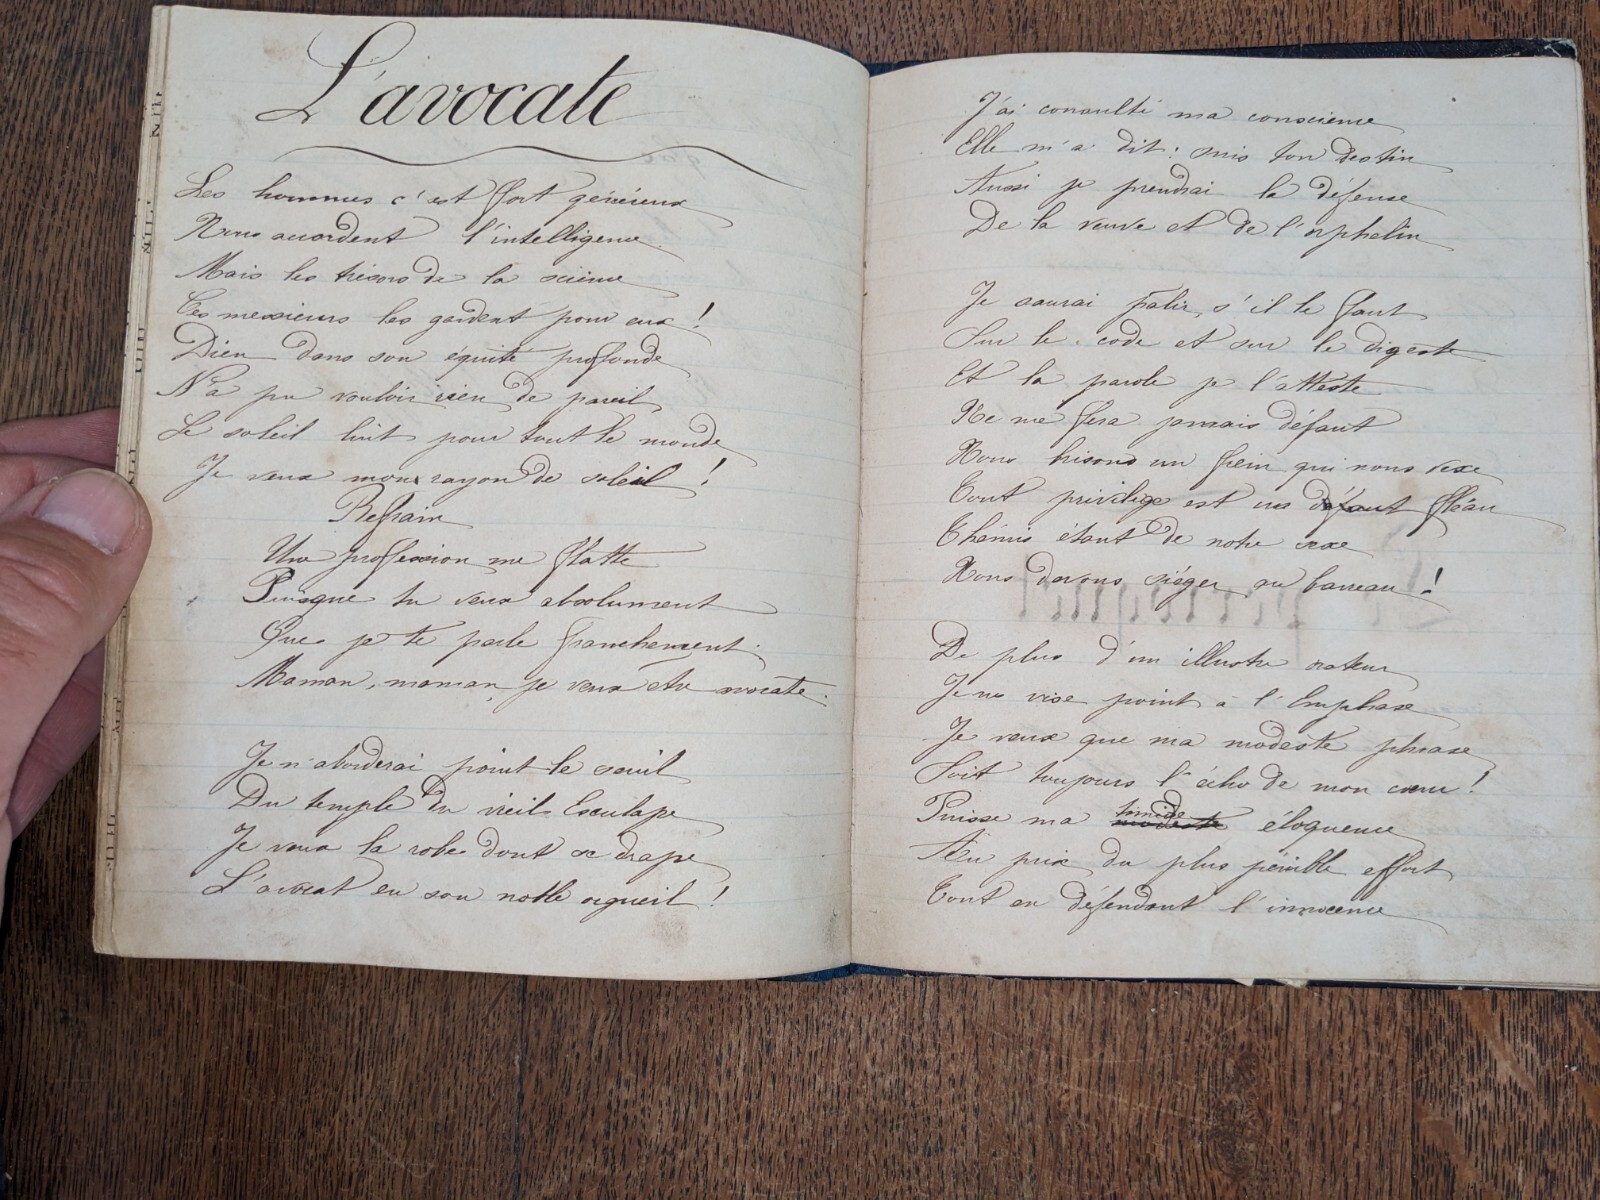 L'avocate
Les hommes c'est fort généreux
Nous accordent l'intelligence
Mais les trésors de la science
Ces messieurs les gardent pour eux !
Dieu dans son équité profonde
N'a pu vouloir rien de pareil
Le soleil luit pour tout le monde
Je veux mon rayon de soleil !
Refrain
Une profession me flatte
Puisque tu veux absolument
Que je te parle franchement.
Maman, maman, je veux être avocate.
Je n'aborderai point le seuil
Du temple du vieil Esculape
Je veux la robe dont se drape
L'avocat en son noble orgueil !
J'ai consulté ma conscience
Elle m'a dit : suis ton destin
Aussi je prendrai la défense
De la veuve et de l'orphelin
Je saurai pâlir, s'il le faut
Sur le code et sur le digeste
Et la parole je l'atteste
Ne me fera jamais défaut
Nous brisons un frein qui nous vexe
Tout privilège est un défaut fléau
Thémis étant de notre sexe
Nous devons siéger au barreau !
De plus d'un illustre orateur
Je ne vise point à l'emphase
Je veux que ma modeste phrase
Soit toujours l'écho de mon cœur !
Puisse ma modeste timide éloquence
Au prix du plus pénible effort
Tout en défendant l'innocence